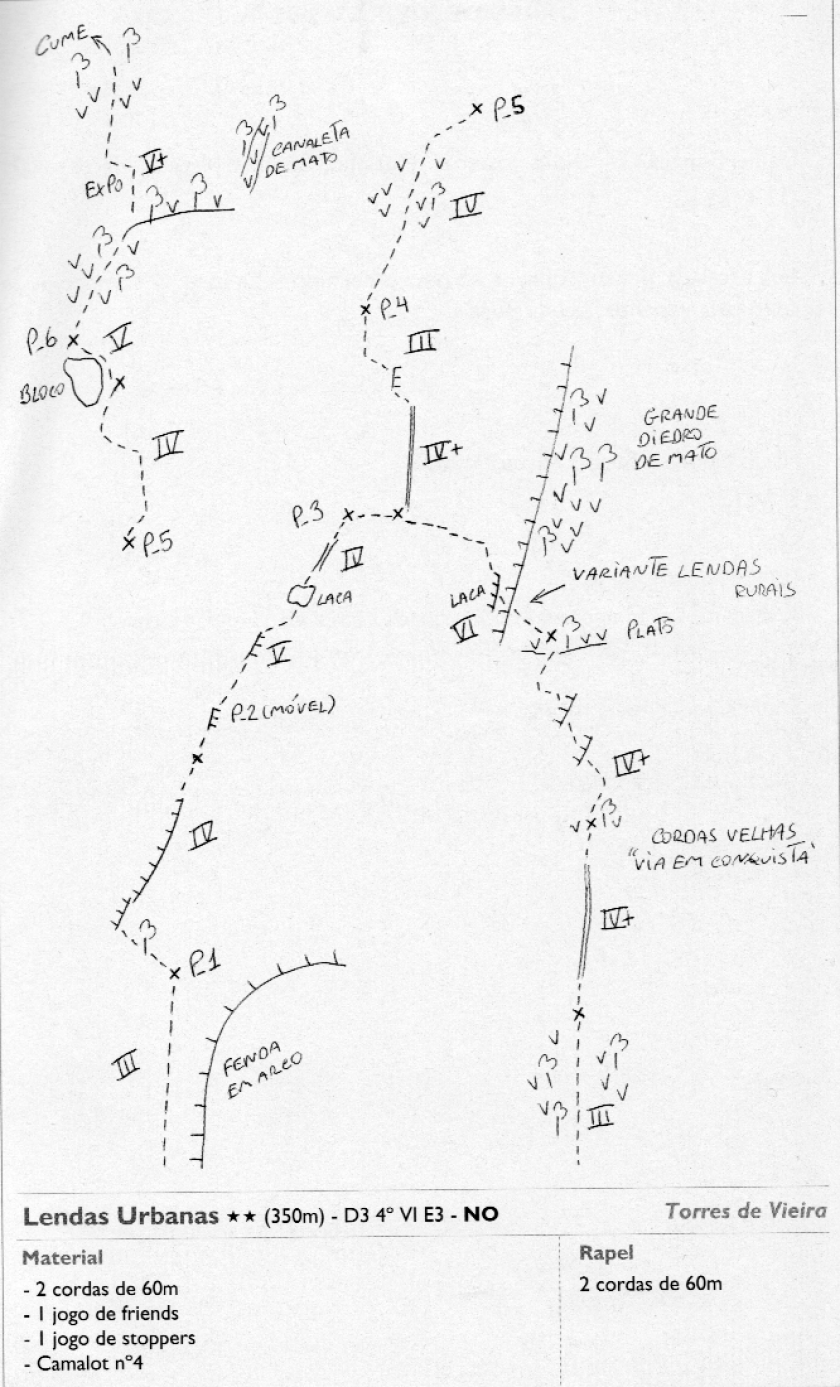 CUME
V+
EXPO
CANALETA
DE MATO
P_6
V
BLOCO
IV
P_5
P_5
IV
P_4
III
E
IV+
GRANDE
DIEDRO
DE MATO
P_3
IV
LACA
V
LACA
VI
VARIANTE LENDAS
RURAIS
PLATÔ
P_2 (MÓVEL)
IV
IV+
CORDAS VELHAS
"VIA EM CONQUISTA"
IV+
P_1
III
FENDA
EM ARCO
III
Lendas Urbanas ★★ (350m) - D3 4º VI E3 - NO
Torres de Vieira
Material
- 2 cordas de 60m
- 1 jogo de friends
- 1 jogo de stoppers
- Camalot nº4
Rapel
2 cordas de 60m